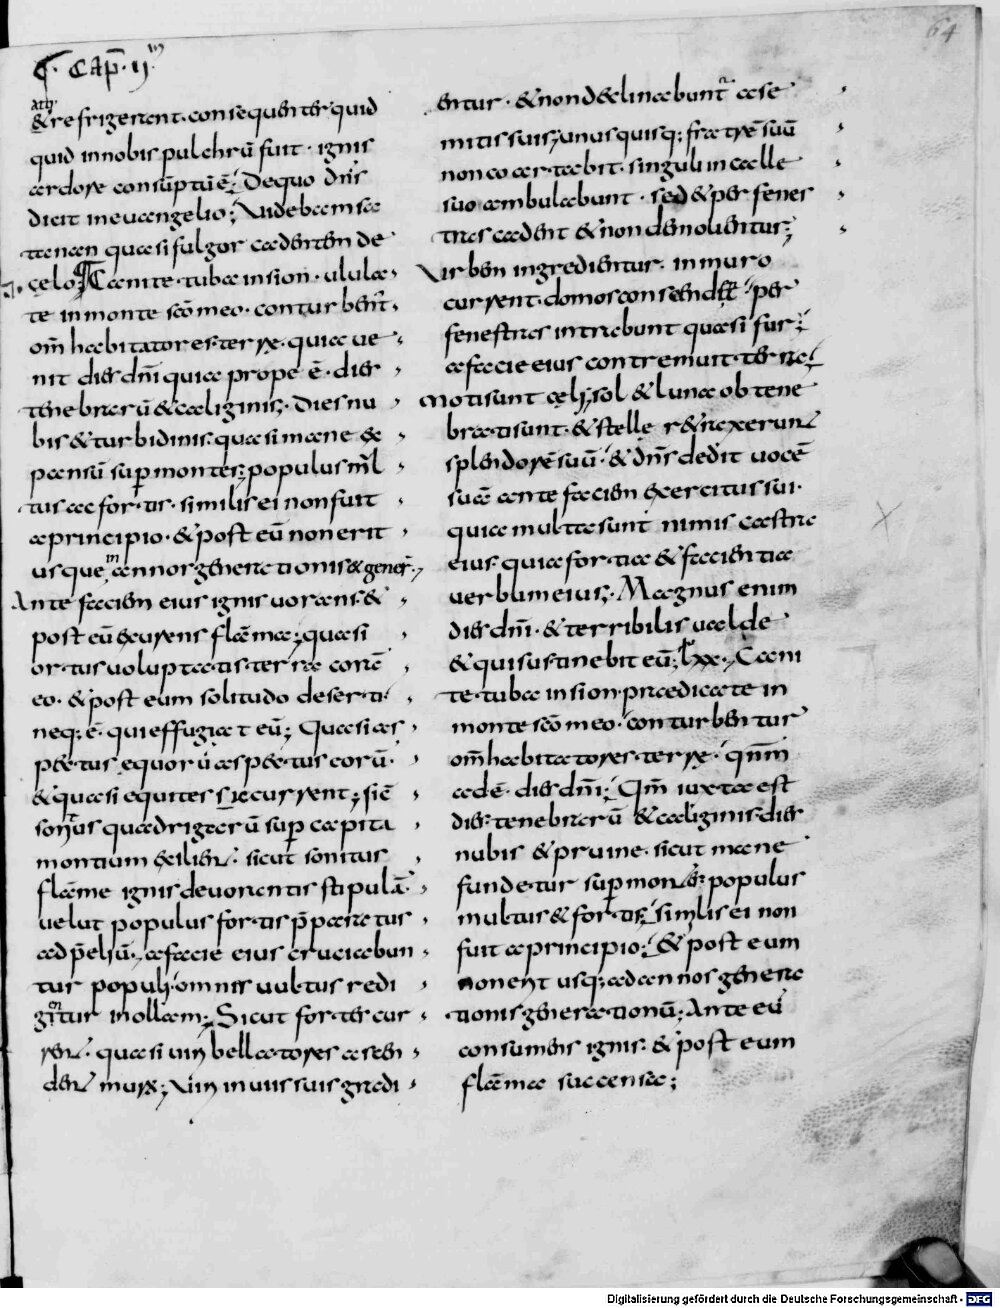 64
Cap. ij
& refrigerant. consequenter quid
quid in nobis pulchrū fuit. ignis
ardore consūptū ē; De quo dn̄s
dicit in euangelio; Videbam sa
tanan quasi fulgor cadentem de
cęlo; Canite tuba in sion. ulula
te in monte sc̄o meo. conturbent̄
om̄ habitatores terrę. quia ue
nit dies dn̄i quia prope ē. dies
tenebrarū & caliginis. Dies nu
bis & turbidinis. quasi mane ex
pansū sup montes; populus ml̄
tus ac fortis. similis ei non fuit
a principio. & post eū non erit
usque in annos generationis & gener̄.
Ante faciem eius ignis uorans. &
post eū exurens flāma; quasi
ortus uoluptatis terra corā
eo. & post eum solitudo deserti
neq; ē. qui effugiat eū; Quasi as
pectus equorū aspectus eorū.
& quasi equites sic current; sic
sonitus quadrigarū sup capita
montium exilient. sicut sonitus
flāme ignis deuorantis stipulā
uelut populus fortis p̄paratus
ad p̄eliū. a facie eius cruciabun
tur populi. omnis uultus redi
getur in ollam; Sicut fortes cur
rent. quasi uiri bellatores ascen
dent murū; Viri in uiis suis gradi
entur. & non declinabunt̄ a se
mitis suis; unusquisq; fratrē suū
non coartabit. singuli in calle
suo ambulabunt. sed & per fenes
tras cadent & non demolientur;
Vrbem ingredientur. in muro
current. domos conscendēt. per
fenestras intrabunt quasi fur;
a facie eius contremuit terra
moti sunt cęli; sol & luna obtene
brati sunt. & stelle retraxerunt
splendorē suū. & dn̄s dedit uocē
suā ante faciem exercitus sui.
quia multa sunt nimis castra
eius. quia fortia & facientia
uerbum eius; Magnus enim
dies dn̄i. & terribilis ualde
& quis sustinebit eū; lxx. Cani
te tuba in sion. praedicate in
monte sc̄o meo. conturbentur
om̄ habitatores terrę. qnm̄
adē. dies dn̄i; Qm̄ iuxta est
dies tenebrarū & caliginis. dies
nubis & pruine. sicut mane
fundetur sup montes populus
multus & fortis; similis ei non
fuit a principio; & post eum
non erit usq; ad annos genera
tionis generationū; Ante eū
consumens ignis. & post eum
flāma succensa;
Digitalisierung gefördert durch die Deutsche Forschungsgemeinschaft - DFG